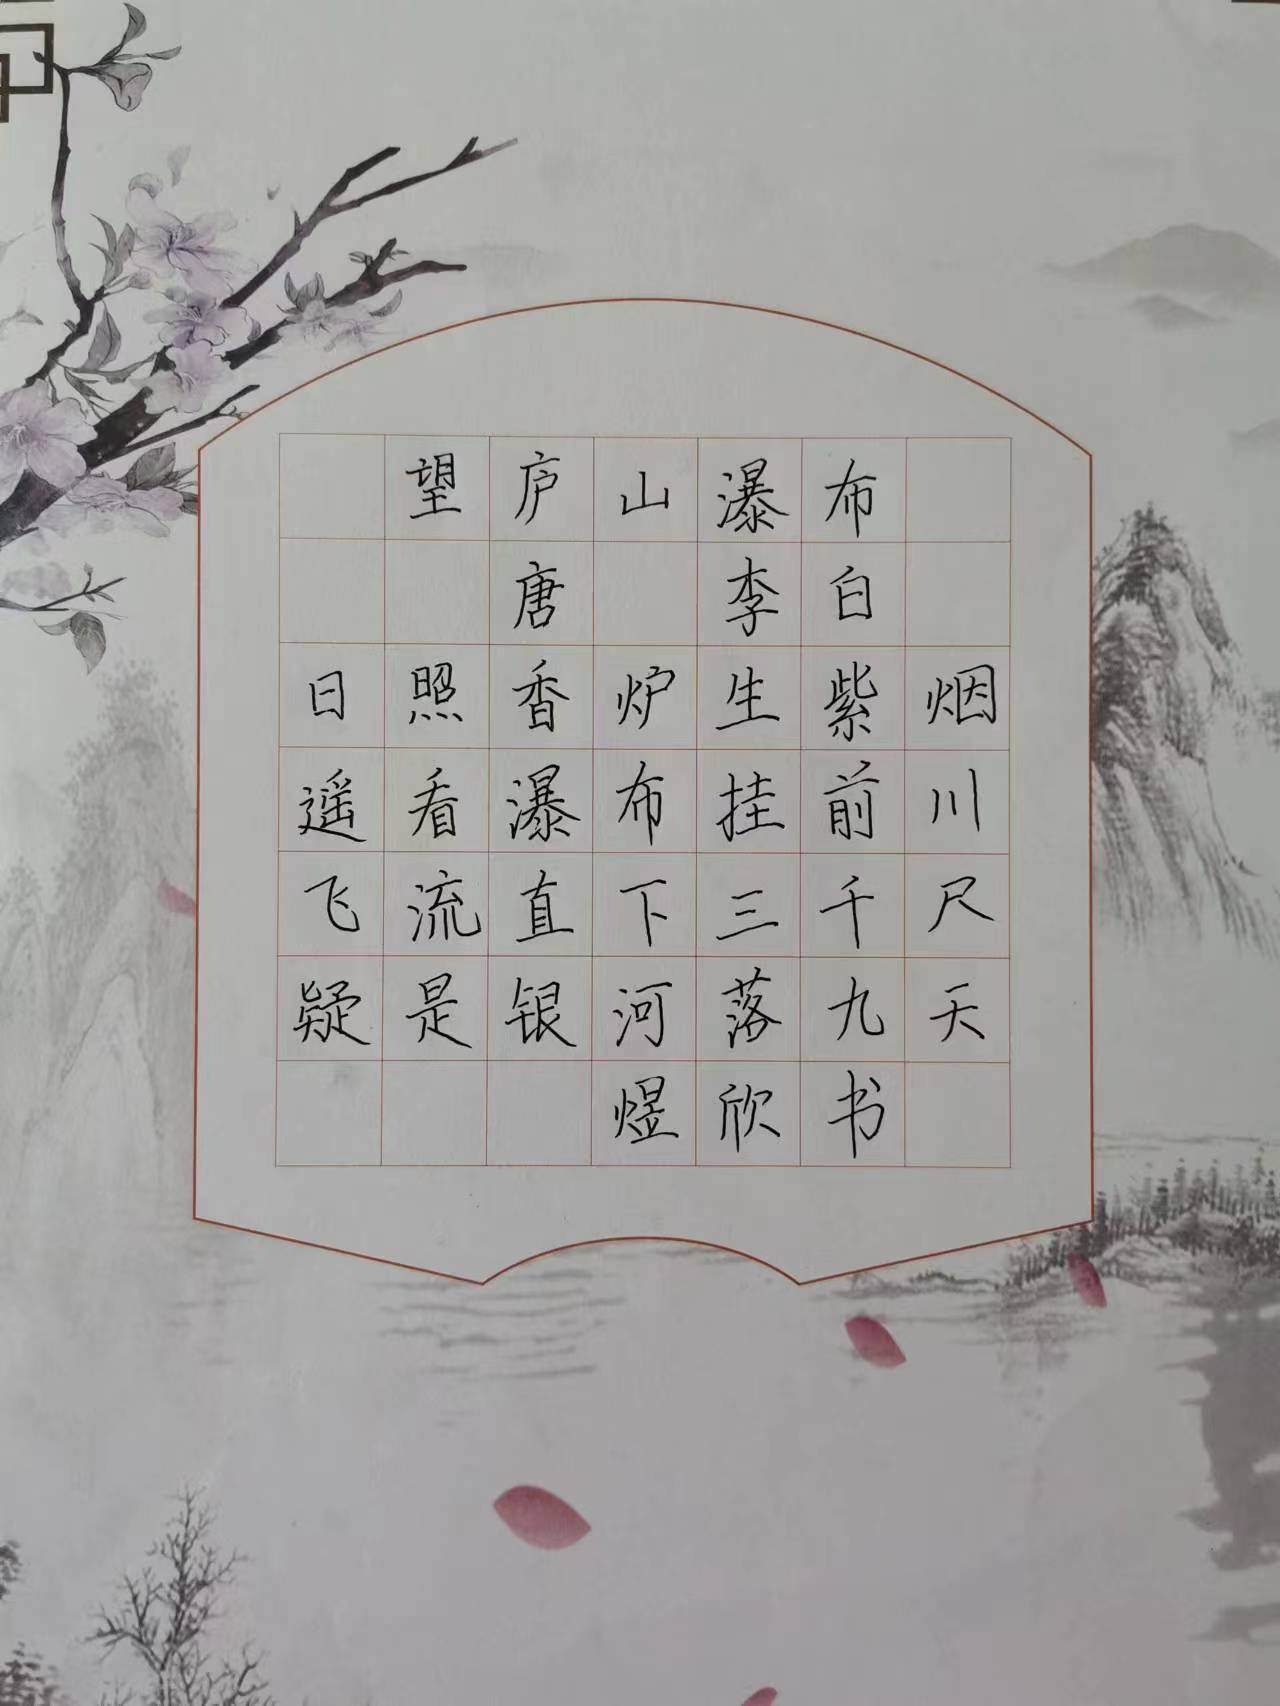 望庐山瀑布
唐 李白
日照香炉生紫烟
遥看瀑布挂前川
飞流直下三千尺
疑是银河落九天
煜欣书